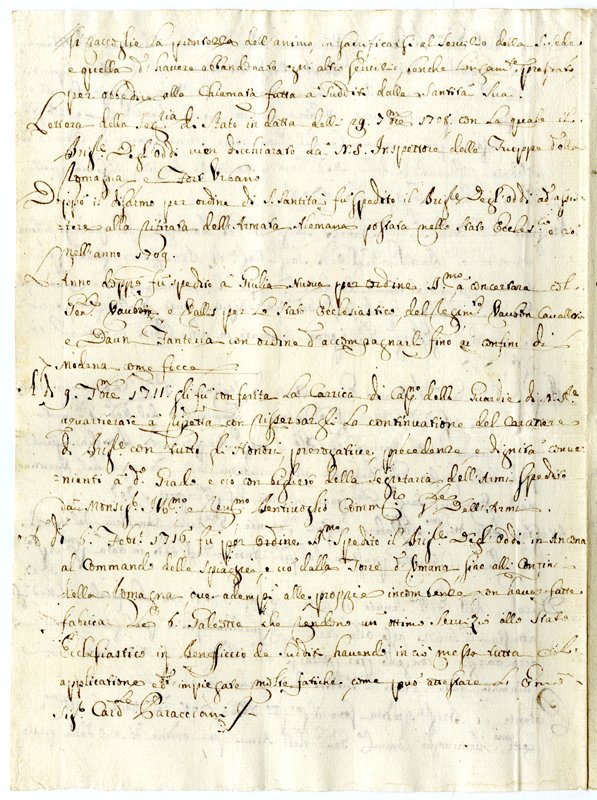 si raccoglie la prontezza dell'animo in sacrificarsi al servitio della S. Sede
e quella d'havere abbandonato ogni altro servitio, benche
per obbedire alla Chiamata fatta a' sudditi dalla Santità Sua.
Lettera della Seg.ria di Stato in data delli 29. 7bre 1708, con la quale il
Brig.re Degl'oddi vien dichiarato da N.S. Inspettore delle Truppe della
Romagna e Forte Urbano
Doppo il disarmo per ordine di S. Santità fu spedito il Brig.re Degl'oddi ad assis-
tere alla ritirata dell'Armata Alemana postata nello Stato Eccles.co e ciò
nell'anno 1709.
L'Anno doppo fu spedito a Giulia Nuova per ordine S.mo a concertare col
Gen.l Vaubon e Vallis per lo Stato Ecclesiastico, del Regim.to Vaubon Cavalleria
e Daun Fanteria con ordine d'accompagnarli fino ai confini di
Modena come fece
Di 9. 7bre 1711. gli fu conferita la Carrica di Cap.o delle Guardie di N. S.re
a con risservargli la continuatione del Carattere
di Brig.re con tutti gli Honori, prerogative, precedenze e dignità conve-
nienti a d.o Grado e ciò con biglietto della Segretaria dell'Armi spedito
da Monsig.r Ill.mo e Rev.mo Bentivoglio Comm.rio Dell'Armi.
Di 6. Feb.o 1716. fu per ordine S.mo spedito il Brig.re Degl'oddi in Ancona
al Commando delle Spiaggie, e ciò dalla Torre d'Umana fino alli Confini
della Romagna ove adempì alle proprie incombenze con haver fatte
fabricare 6. Palestre che rendono un ottimo servitio allo Stato
Ecclesiastico in Beneficcio de sudditi, havendo in ciò messo tutta
applicatione et impiegate molte fatiche come può attestare
Sig.r Card.le Paracciani